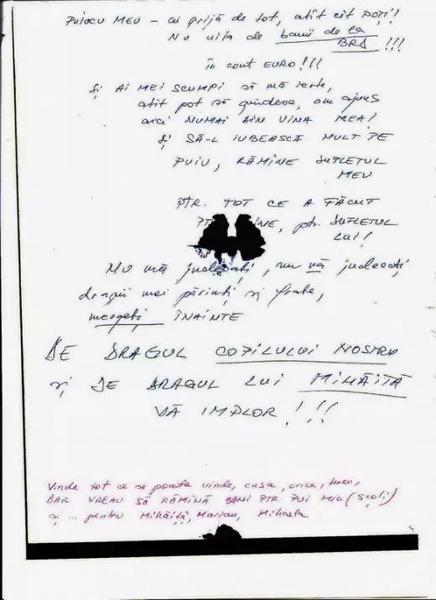 PUIOCU MEU - ai grijă de tot, atît cît POȚI!
NU uita de banii de la
BRD !!!
în cont EURO!!!
Și AI MEI SCUMPI să mă ierte,
atît pot să gîndesc, am ajuns
aici NUMAI DIN VINA MEA!
Și SĂ-L IUBEASCĂ MULT PE
PUIU, RĂMÎNE SUFLETUL
MEU
PTR. TOT CE A FĂCUT
ptr. SUFLETUL
LUI!
NU mă judecați, nu vă judecați,
dragii mei părinți și frate,
mergeți ÎNAINTE
DE DRAGUL COPILULUI NOSTRU
și DE DRAGUL LUI MIHĂIȚĂ
VĂ IMPLOR !!!
Vinde tot ce se poate vinde, casa, orice,
DAR VREAU SĂ RĂMÎNĂ BANI PTR. PUI MIC (școli)
și ... pentru Mihăiță, Marian, Mihaela